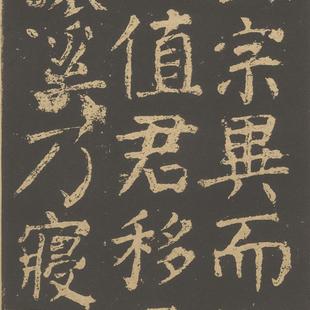 宗異而
值君移
乃寢